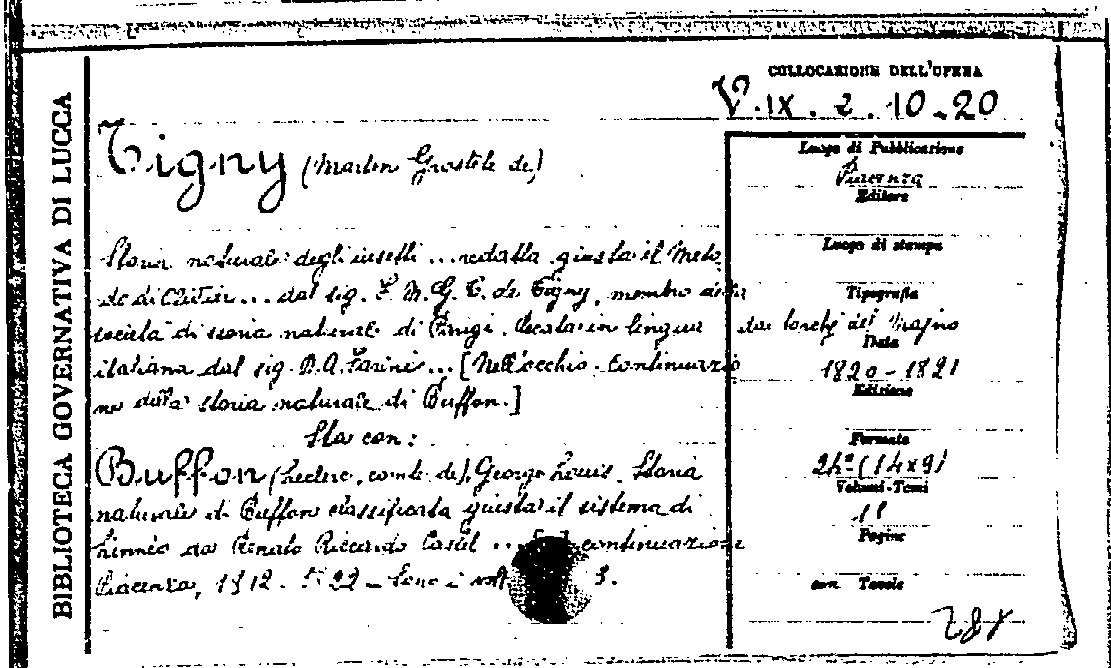 BIBLIOTECA GOVERNATIVA DI LUCCA
COLLOCAZIONE DELL'OPERA
V. IX. 2. 10-20
Tigny (Martin Grostête de)
Storia naturale degli insetti ... redatta giusta il Meto
do di ... dal sig. F. M. G. T. de Tigny, membro della
società di storia naturale di Parigi. Recata in lingua
italiana dal sig. D. A. Farini ... [Nell'occhio: Continuazio
ne della storia naturale di Buffon.]
Sta con:
Buffon (Leclerc, comte de), George Louis. Storia
naturale di Buffon classificata giusta il sistema di
Linneo da Renato Riccardo Castel ... continuazione
Piacenza, 1812 - Sono i
Luogo di Pubblicazione
Piacenza
Editore
Luogo di stampa
Tipografia
dai torchj del Majno
Data
1820-1821
Edizione
Formato
24° (14x9)
Volumi-Tomi
11
Pagine
con Tavole